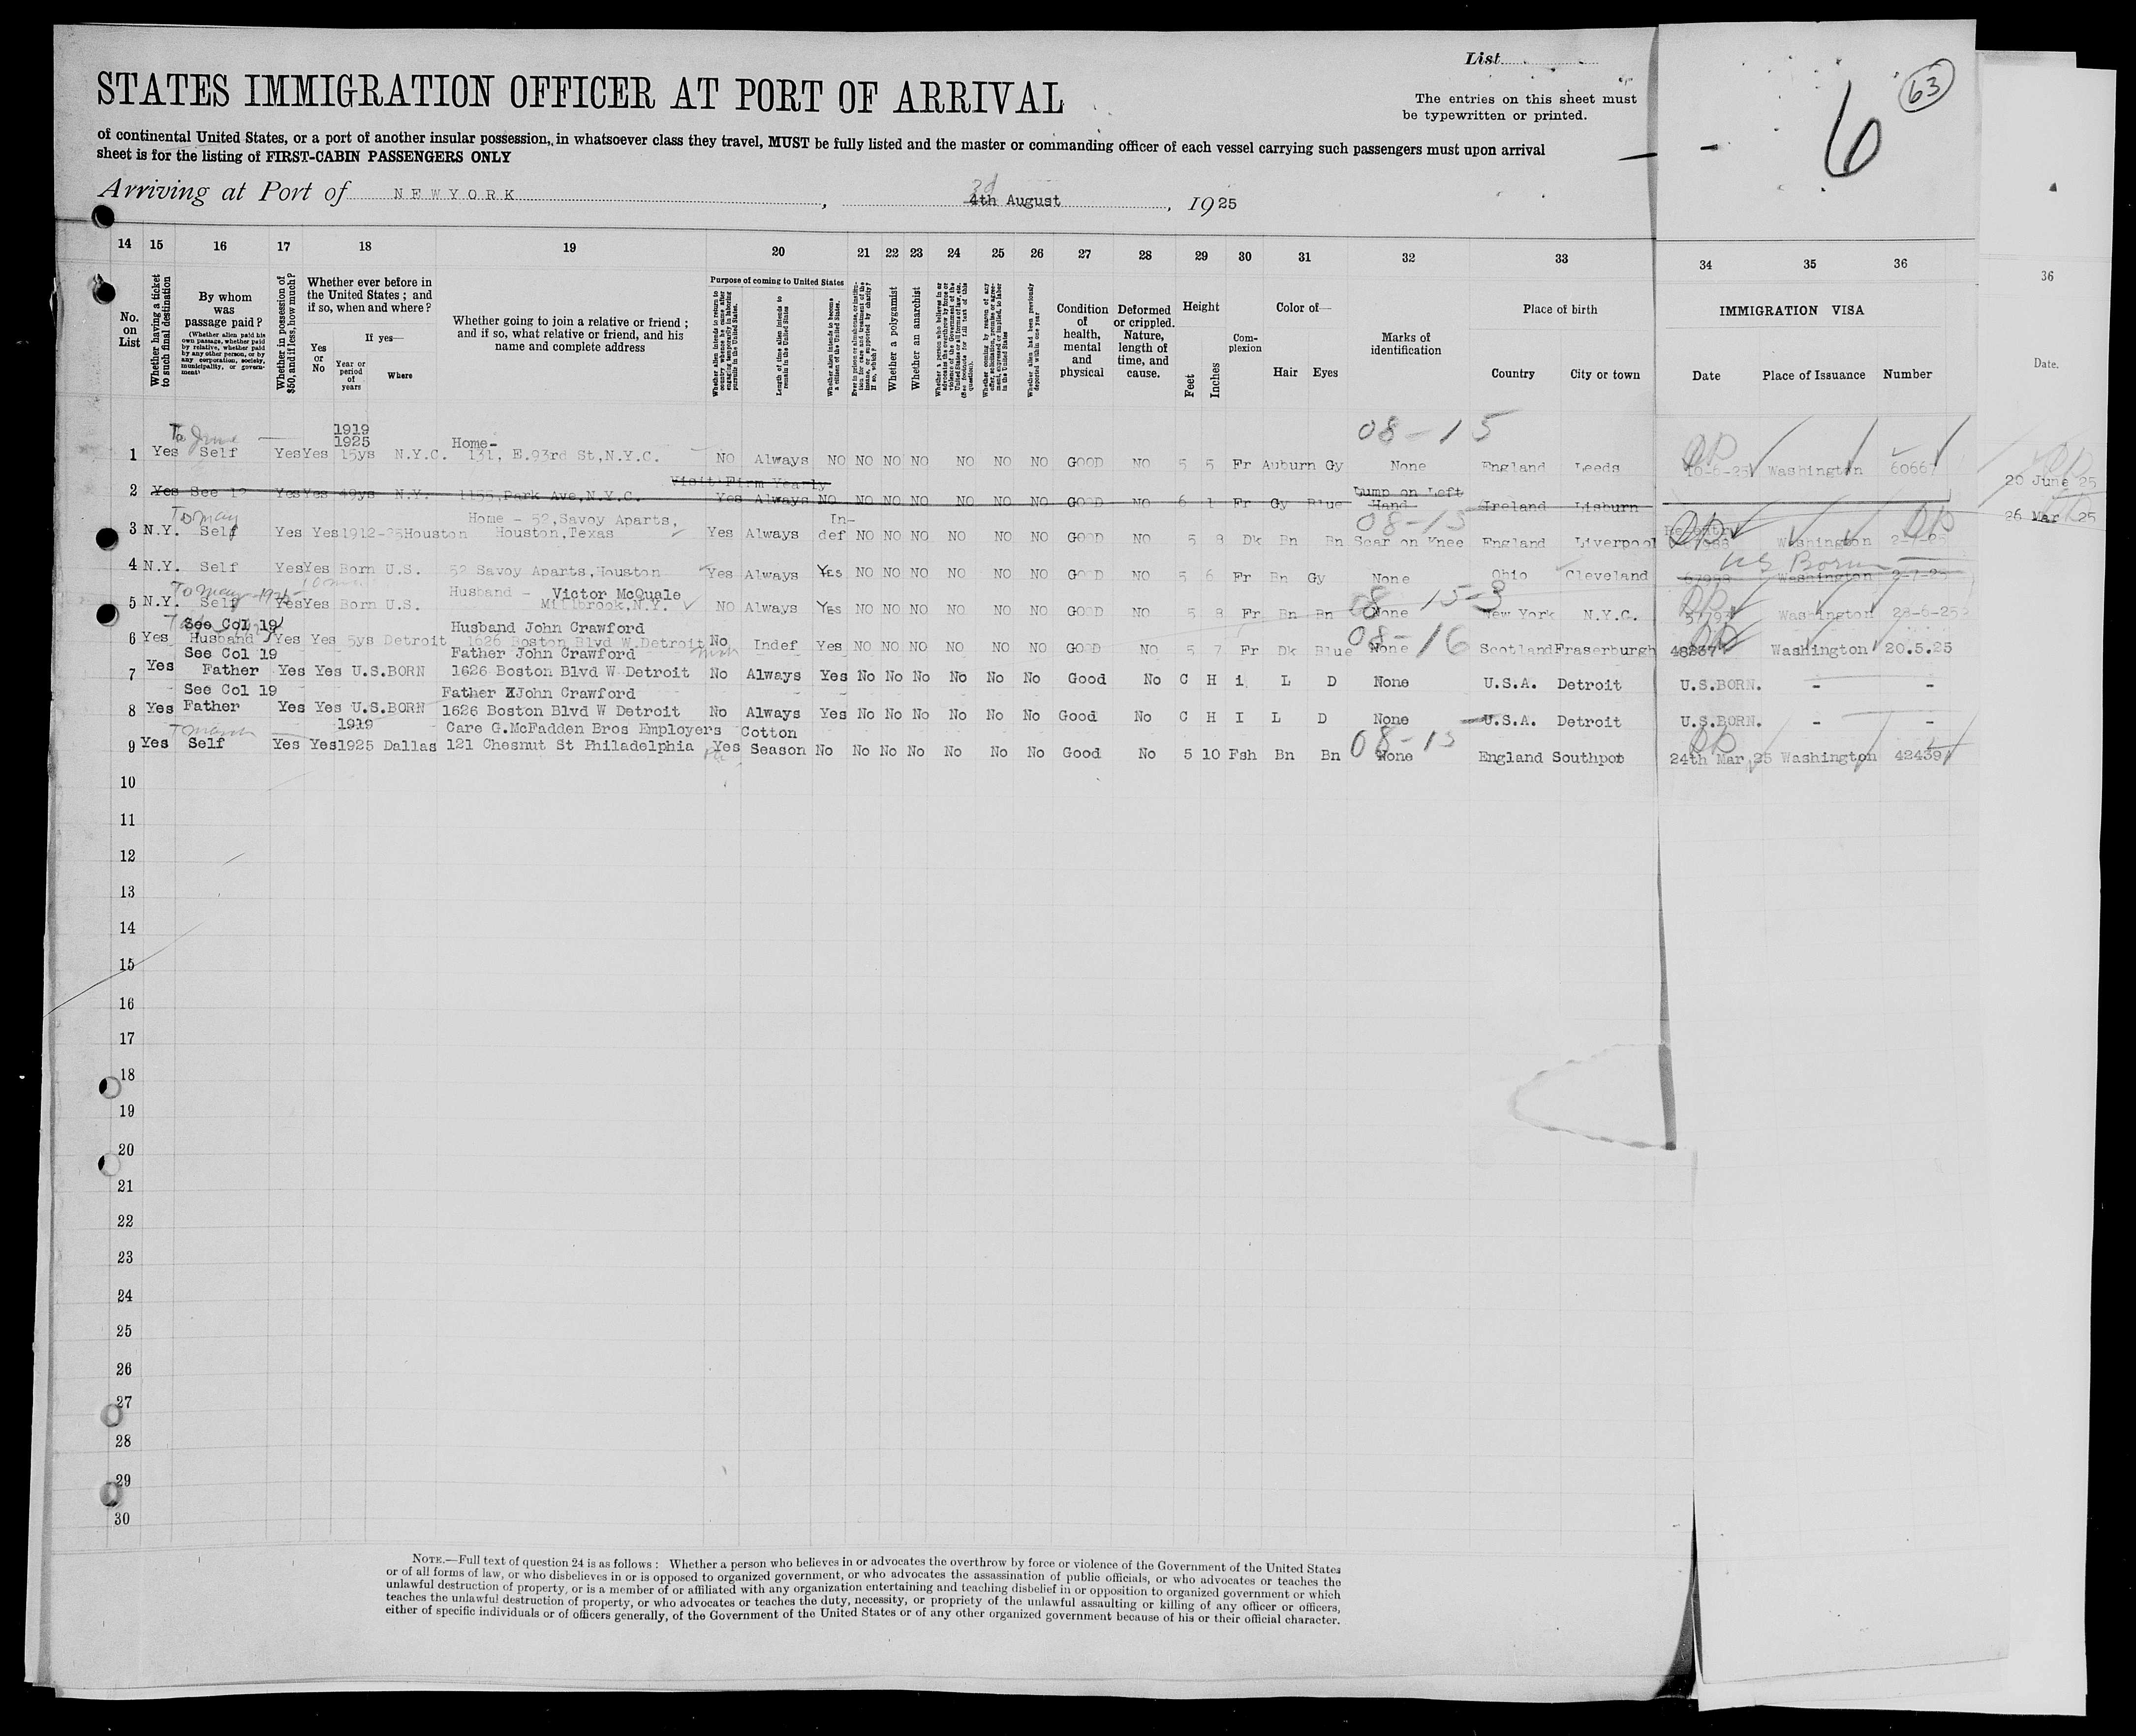 List
STATES IMMIGRATION OFFICER AT PORT OF ARRIVAL
The entries on this sheet must
be typewritten or printed.
6
63
of continental United States, or a port of another insular possession, in whatsoever class they travel, MUST be fully listed and the master or commanding officer of each vessel carrying such passengers must upon arrival
sheet is for the listing of FIRST-CABIN PASSENGERS ONLY
Arriving at Port of NEWYORK, 3d 4th August, 1925
14 15 16 17 18 19 20 21 22 23 24 25 26 27 28 29 30 31 32 33 34 35 36
36
No. on List
Whether having a ticket to such final destination
By whom was passage paid?
(Whether alien paid his own passage, whether paid by relative, whether paid by any other person, or by any corporation, society, municipality, or government)
Whether in possession of $50, and if less, how much?
Whether ever before in the United States; and if so, when and where?
Yes or No
If yes—
Year or period of years
Where
Whether going to join a relative or friend; and if so, what relative or friend, and his name and complete address
Purpose of coming to United States
Length of time alien intends to remain in the United States
Whether alien intends to become a citizen of the United States.
Whether a polygamist
Whether an anarchist
Whether alien had been previously deported within one year
Condition of health, mental and physical
Deformed or crippled. Nature, length of time, and cause.
Height
Feet
Inches
Complexion
Color of—
Hair Eyes
Marks of identification
Place of birth
Country City or town
IMMIGRATION VISA
Date Place of Issuance Number
Date.
08-15
1919
1925
Home-
1 Yes Self Yes Yes 15ys N.Y.C. 131, E.93rd St,N.Y.C. NO Always NO NO NO NO NO NO NO GOOD NO 5 5 Fr Auburn Gy None England Leeds 10-6-25 Washington 60667
Visit Firm Yearly
20 June 25
2 Yes See 1? Yes Yes 49ys N.Y. 1155,Park Ave,N.Y.C. Yes Always NO NO NO NO NO NO NO GOOD NO 6 1 Fr Gy Blue Bump on Left Hand Ireland Lisburn
26 Mar 25
To May
Home - 52,Savoy Aparts, In-
08-15
3 N.Y. Self Yes Yes 1912-25 Houston Houston,Texas Yes Always def NO NO NO NO NO NO GOOD NO 5 8 Dk Bn Bn Scar on Knee England Liverpool Washington
US Born
4 N.Y. Self Yes Yes Born U.S. 52 Savoy Aparts,Houston Yes Always Yes NO NO NO NO NO NO GOOD NO 5 6 Fr Bn Gy None Ohio Cleveland Washington
Husband - Victor McQuale
08 15-3
5 N.Y. Self Yes Yes Born U.S. Millbrook,N.Y. NO Always Yes NO NO NO NO NO NO GOOD NO 5 8 Fr Bn Bn None New York N.Y.C. Washington 28-6-25
See Col 19 Husband John Crawford
08-16
6 Yes Husband Yes Yes 5ys Detroit 1626 Boston Blvd W Detroit No Indef Yes NO NO NO NO NO NO GOOD NO 5 7 Fr Dk Blue None Scotland Fraserburgh 48237 Washington 20.5.25
See Col 19 Father John Crawford
7 Yes Father Yes Yes U.S.BORN 1626 Boston Blvd W Detroit No Always Yes No No No No No No Good No C H i L D None U.S.A. Detroit U.S.BORN. - -
See Col 19 Father XJohn Crawford
8 Yes Father Yes Yes U.S.BORN 1626 Boston Blvd W Detroit No Always Yes No No No No No No Good No C H I L D None U.S.A. Detroit U.S.BORN. - -
1919 Care G.McFadden Bros Employers Cotton
08-15
9 Yes Self Yes Yes 1925 Dallas 121 Chesnut St Philadelphia Yes Season No No No No No No No Good No 5 10 Fsh Bn Bn None England Southpot 24th Mar 25 Washington 42439
10
11
12
13
14
15
16
17
18
19
20
21
22
23
24
25
26
27
28
29
30
NOTE.—Full text of question 24 is as follows: Whether a person who believes in or advocates the overthrow by force or violence of the Government of the United States
or of all forms of law, or who disbelieves in or is opposed to organized government, or who advocates the assassination of public officials, or who advocates or teaches the
unlawful destruction of property, or is a member of or affiliated with any organization entertaining and teaching disbelief in or opposition to organized government or which
teaches the unlawful destruction of property, or who advocates or teaches the duty, necessity, or propriety of the unlawful assaulting or killing of any officer or officers,
either of specific individuals or of officers generally, of the Government of the United States or of any other organized government because of his or their official character.